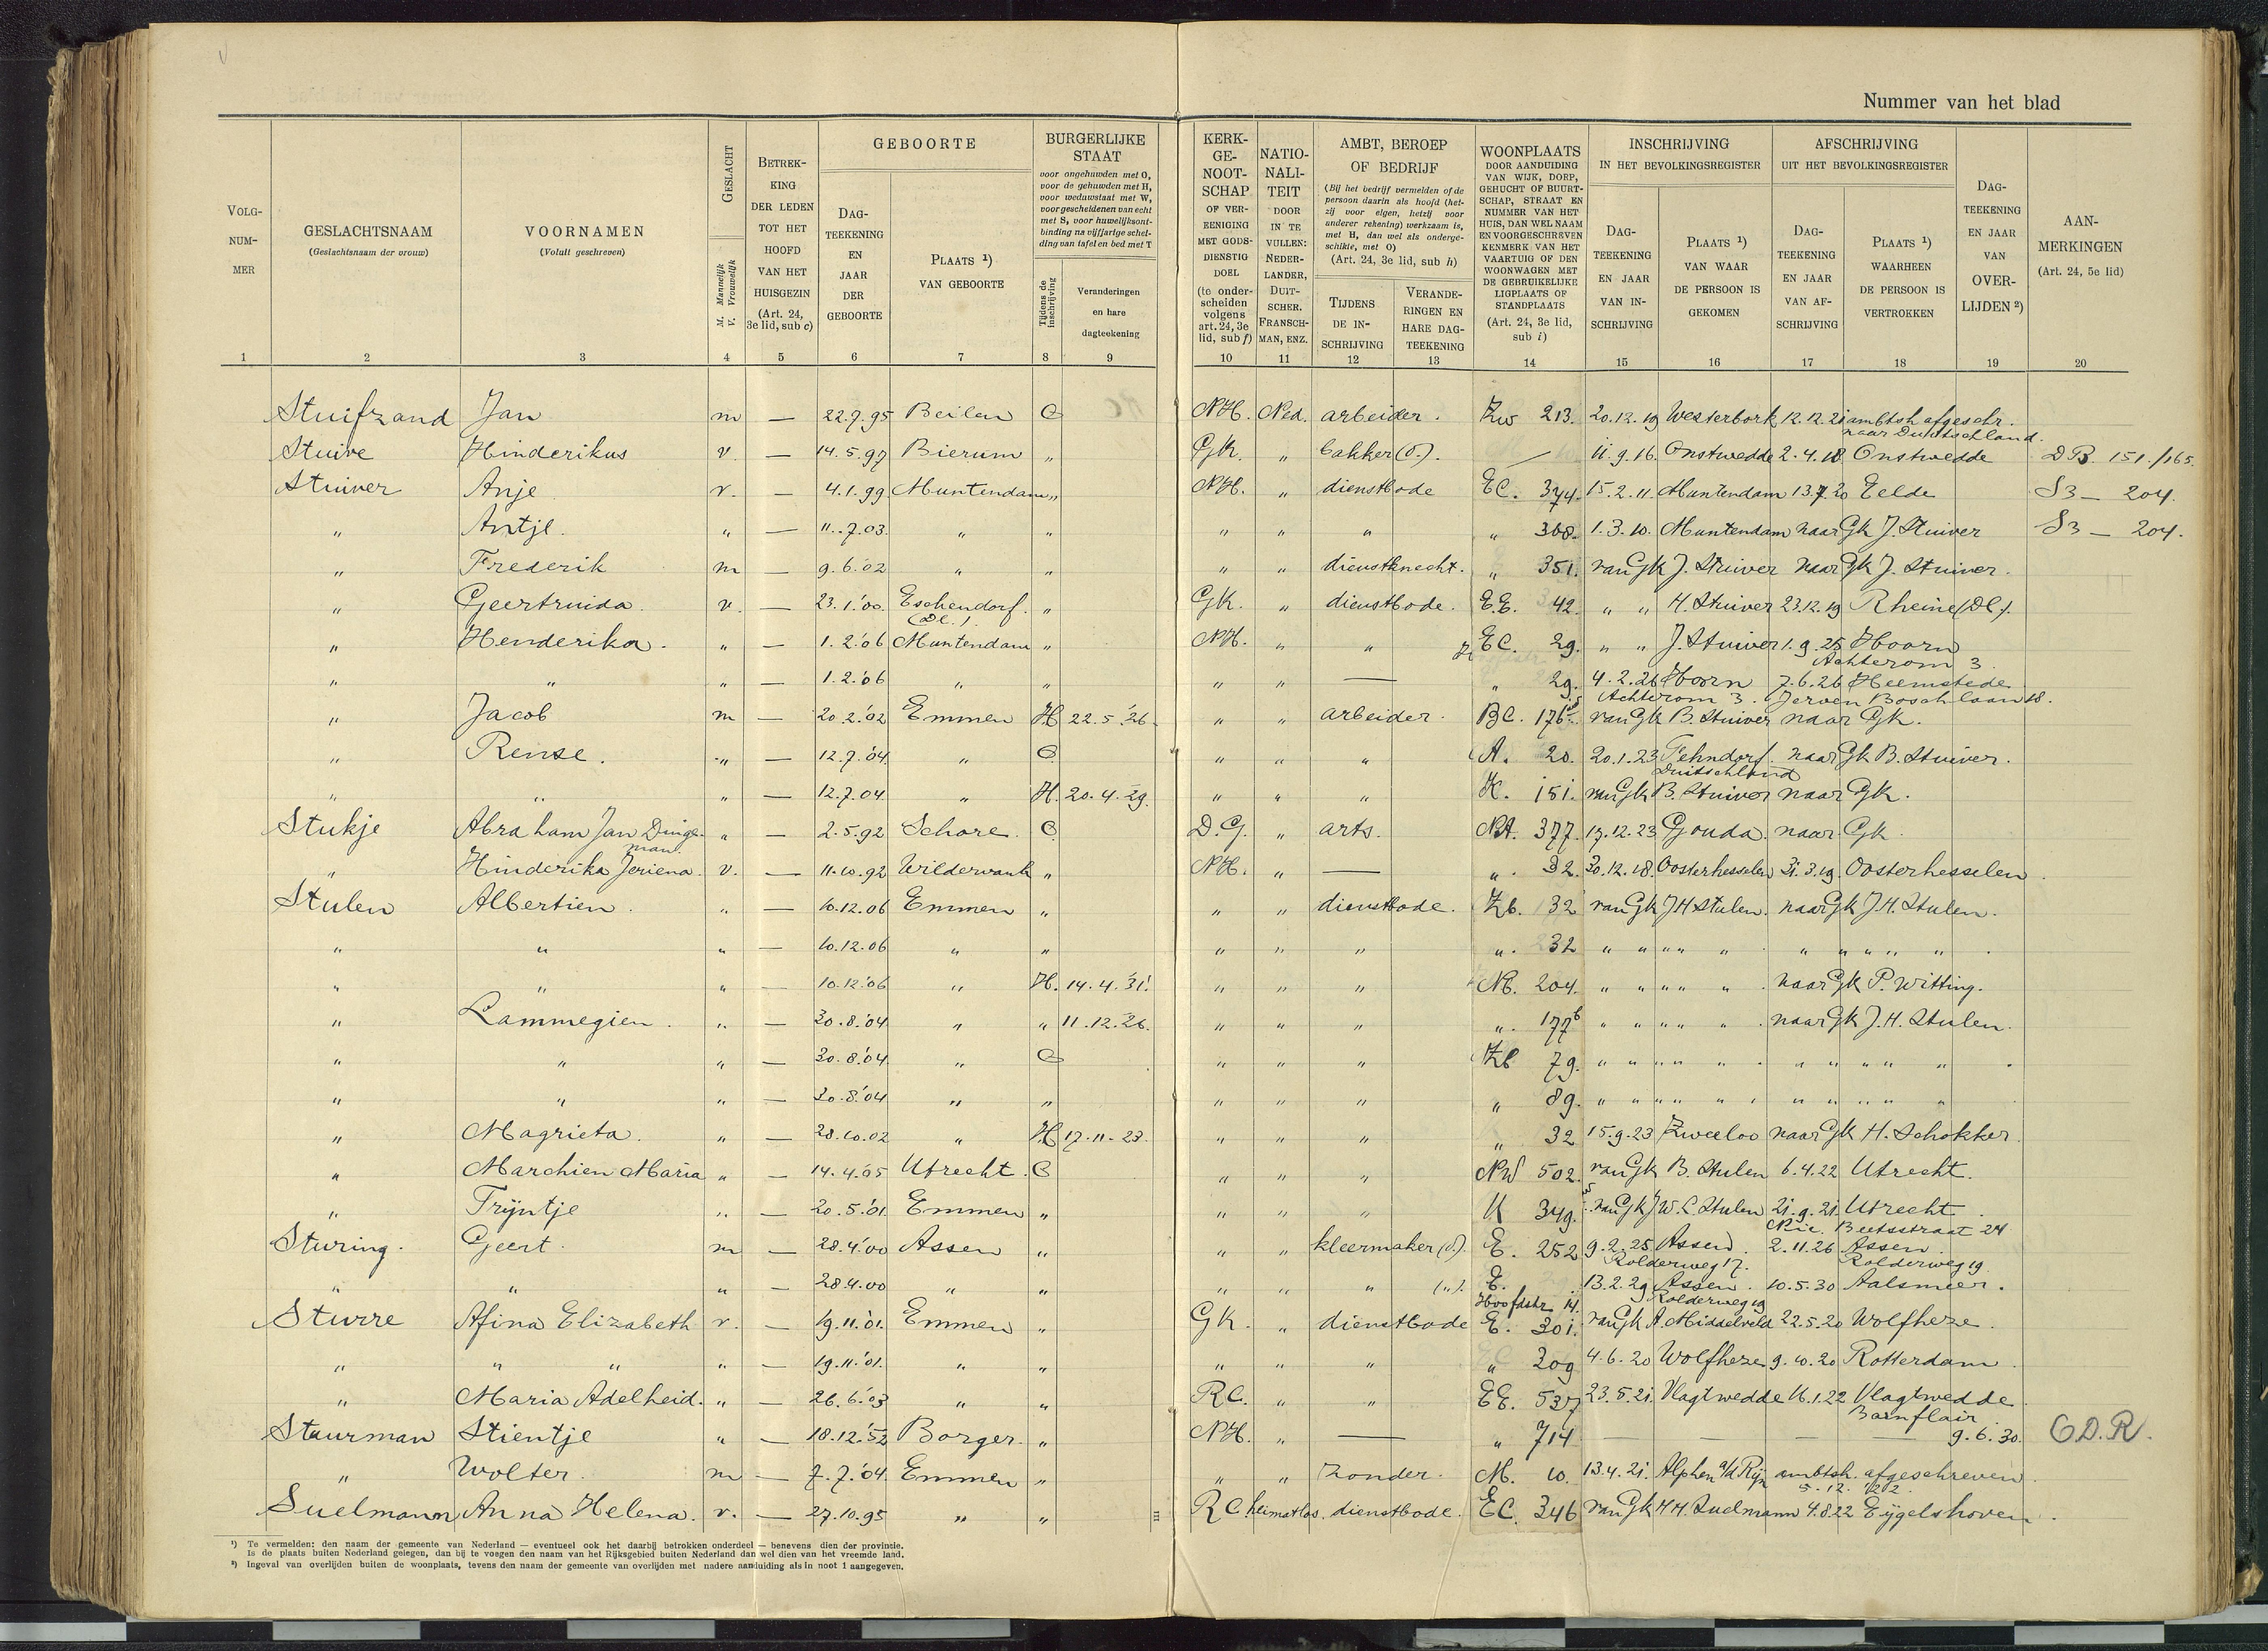 Nummer van het blad
VOLG-NUM-MER 1
GESLACHTSNAAM (Geslachtsnaam der vrouw) 2
VOORNAMEN (Voluit geschreven) 3
GESLACHT M. Mannelijk V. Vrouwelijk 4
BETREK-KING DER LEDEN TOT HET HOOFD VAN HET HUISGEZIN (Art. 24, 3e lid, sub c) 5
GEBOORTE
DAG-TEEKENING EN JAAR DER GEBOORTE 6
PLAATS ¹) VAN GEBOORTE 7
BURGERLIJKE STAAT
voor ongehuwden met O, voor de gehuwden met H, voor weduwstaat met W, voor gescheidenen van echt met S, voor huwelijksont-binding na vijfjarige schei-ding van tafel en bed met T
Tijdens de inschrijving 8
Veranderingen en hare dagteekening 9
KERK-GE-NOOT-SCHAP OF VER-EENIGING MET GODS-DIENSTIG DOEL (te onder-scheiden volgens art. 24, 3e lid, sub f) 10
NATIO-NALI-TEIT DOOR IN TE VULLEN: NEDER-LANDER, DUIT-SCHER, FRANSCH-MAN, ENZ. 11
AMBT, BEROEP OF BEDRIJF
(Bij het bedrijf vermelden of de persoon daarin als hoofd (het-zij voor eigen, hetzij voor anderer rekening) werkzaam is, met H, dan wel als onderge-schikte, met O) (Art. 24, 3e lid, sub h)
TIJDENS DE IN-SCHRIJVING 12
VERANDE-RINGEN EN HARE DAG-TEEKENING 13
WOONPLAATS DOOR AANDUIDING VAN WIJK, DORP, GEHUCHT OF BUURT-SCHAP, STRAAT EN NUMMER VAN HET HUIS, DAN WEL NAAM EN VOORGESCHREVEN KENMERK VAN HET VAARTUIG OF DEN WOONWAGEN MET DE GEBRUIKELIJKE LIGPLAATS OF STANDPLAATS (Art. 24, 3e lid, sub i) 14
INSCHRIJVING IN HET BEVOLKINGSREGISTER
DAG-TEEKENING EN JAAR VAN IN-SCHRIJVING 15
PLAATS ¹) VAN WAAR DE PERSOON IS GEKOMEN 16
AFSCHRIJVING UIT HET BEVOLKINGSREGISTER
DAG-TEEKENING EN JAAR VAN AF-SCHRIJVING 17
PLAATS ¹) WAARHEEN DE PERSOON IS VERTROKKEN 18
DAG-TEEKENING EN JAAR VAN OVER-LIJDEN ²) 19
AAN-MERKINGEN (Art. 24, 5e lid) 20
Stuifzand Jan m — 22.7.95 Beilen O NH. Ned. arbeider. Zw 213. 20.12.19 Westerbork 12.12.21 ambtsh afgeschr. naar Duitschland.
Stuive Hinderikus v. — 14.5.97 Bierum " GK. " bakker (O.). — 11.9.16. Onstwedde 2.4.18 Onstwedde DB. 151./165.
Stuiver Anje v. — 4.1.99 Muntendam " NH. " dienstbode EC. 374. 15.2.11. Muntendam 13.7.20 Eelde S3 — 204.
" Antje. " — 11.7.03. " " " " " " 368. 1.3.10. Muntendam naar Gk J. Stuiver S3 — 204.
" Frederik m — 9.6.'02 " " " " dienstknecht. " 351. van Gk J. Stuiver naar Gk J. Stuiver.
" Geertruida. v. — 23.1.'00. Eschendorf. (Dl.). " GK. " dienstbode. E.E. 42. " " H. Stuiver 23.12.19 Rheine (Dl.).
" Henderika. " — 1.2.'06 Muntendam " NH. " " EC. 29. " " J. Stuiver 1.9.25 Hoorn Achterom 3.
" " " — 1.2.'06 " " " " — " 29. 4.2.26 Hoorn Achterom 3. 7.6.26 Heemstede Jerven Boschlaan 18.
" Jacob m — 20.2.'02 Emmen H 22.5.'26. " " arbeider. BC. 176 van Gk B. Stuiver naar Gk.
" Rense. " — 12.7.'04. " O " " " A. 20. 20.1.23 Fehndorf. Duitschland naar Gk B. Stuiver.
" " " — 12.7.04. " H. 20.4.29. " " " K. 151. van Gk B. Stuiver naar Gk.
Stukje Abraham Jan Dinge-man. " — 2.5.92 Schore. O D.G. " arts. NA. 377. 17.12.23 Gouda. naar Gk.
" Hinderika Jeriena. v. — 11.10.92 Wildervank " NH. " — ". 32. 30.12.18. Oosterhesselen 31.3.19. Oosterhesselen.
Stulen Albertien. " — 10.12.06 Emmen " " " dienstbode. Zb. 132 van Gk JH Stulen. naar Gk J.H. Stulen.
" " " — 10.12.06 " " " " " ". 232 " " " " " " " " " "
" " " — 10.12.'06 " H. 14.4.'31. " " " NB. 204. " " " " " naar Gk P. Witting.
" Lammegien. " — 30.8.'04 " " 11.12.26. " " " ". 177b " " " " " naar Gk J.H. Stulen.
" " " — 30.8.'04. " O " " " Zb 79. " " " " " " " " " "
" " " — 30.8.'04 " " " " " " 89. " " " " " " " " " "
" Magrieta. " — 28.10.02 " H 17.11.23. " " " " 32 15.9.23 Zweeloo naar Gk H. Schokker.
" Marchien Maria " — 14.4.'05 Utrecht. O " " " NW 502. van Gk B. Stulen 6.4.22 Utrecht.
" Trijntje " — 20.5.'01. Emmen " " " " K 349. van Gk J W.C. Stulen 21.9.21. Utrecht Nic. Beetsstraat 24
Sturing. Geert. m — 28.4.'00 Assen " " " kleermaker (O.). E. 252 9.2.25 Assen. Rolderweg 17. 2.11.26 Assen. Rolderweg 19.
" " " — 28.4.00 " " " " " ("). E. Hoofdstr 14. 13.2.29 Assen. Rolderweg 19 10.5.30 Aalsmeer.
Sturre Afina Elizabeth v. — 19.11.'01. Emmen " GK. " dienstbode E. 301. van Gk A. Middelveld 22.5.20 Wolfheze.
" " " " — 19.11.'01. " " " " " " 309 4.6.20 Wolfheze 9.10.20 Rotterdam.
" Maria Adelheid. " — 26.6.'03 " " RC. " " EE. 537 23.5.21. Vlagtwedde 16.1.22 Vlagtwedde Barnflair.
Stuurman Stientje " — 18.12.'52 Borger. " NH. " — " 714 — — — — 9.6.30. CD.R.
" Wolter. m — 7.7.'04. Emmen " " " zonder. M. 10. 13.4.21. Alphen a/d Rijn ambtsh. afgeschreven 5.12.'22.
Suelmann Anna Helena. v. — 27.10.95 " " RC heimatlos. dienstbode. EC. 346 van Gk HH. Suelmann 4.8.22 Eijgelshoven.
¹) Te vermelden: den naam der gemeente van Nederland — eventueel ook het daarbij betrokken onderdeel — benevens dien der provincie.
Is de plaats buiten Nederland gelegen, dan bij te voegen den naam van het Rijksgebied buiten Nederland dan wel dien van het vreemde land.
²) Ingeval van overlijden buiten de woonplaats, tevens den naam der gemeente van overlijden met nadere aanduiding als in noot 1 aangegeven.